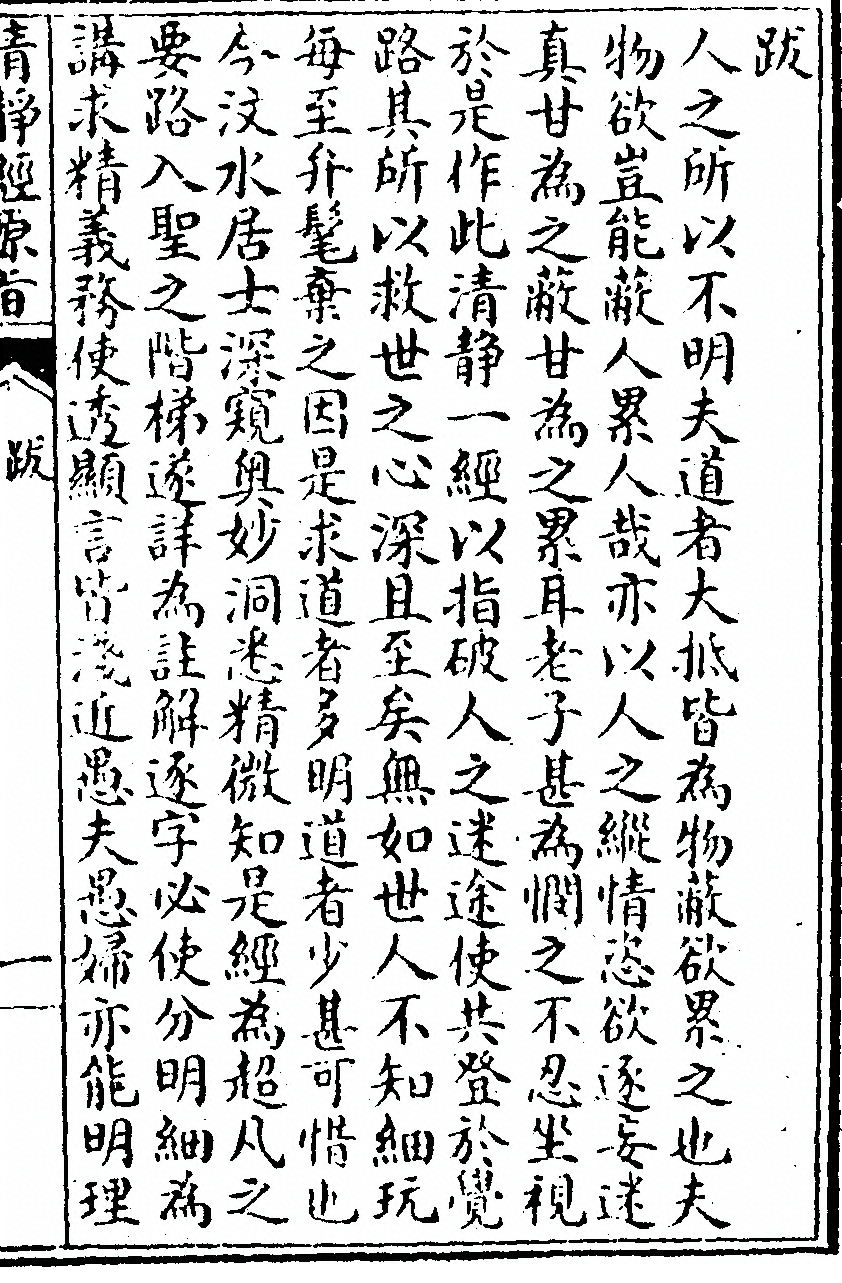 跋
人之所以不明夫道者大抵皆為物蔽欲累之也夫
物欲豈能蔽人累人哉亦以人之縱情恣欲逐妄迷
真甘為之蔽甘為之累耳老子甚為憫之不忍坐視
於是作此清靜一經以指破人之迷途使共登於覺
路其所以救世之心深且至矣無如世人不知細玩
每至弁髦棄之因是求道者多明道者少甚可惜也
今汶水居士深窺奧妙洞悉精微知是經為超凡之
要路入聖之階梯遂詳為註解逐字必使分明細為
講求精義務使透顯言皆淺近愚夫愚婦亦能明理
清靜經原旨
跋
一